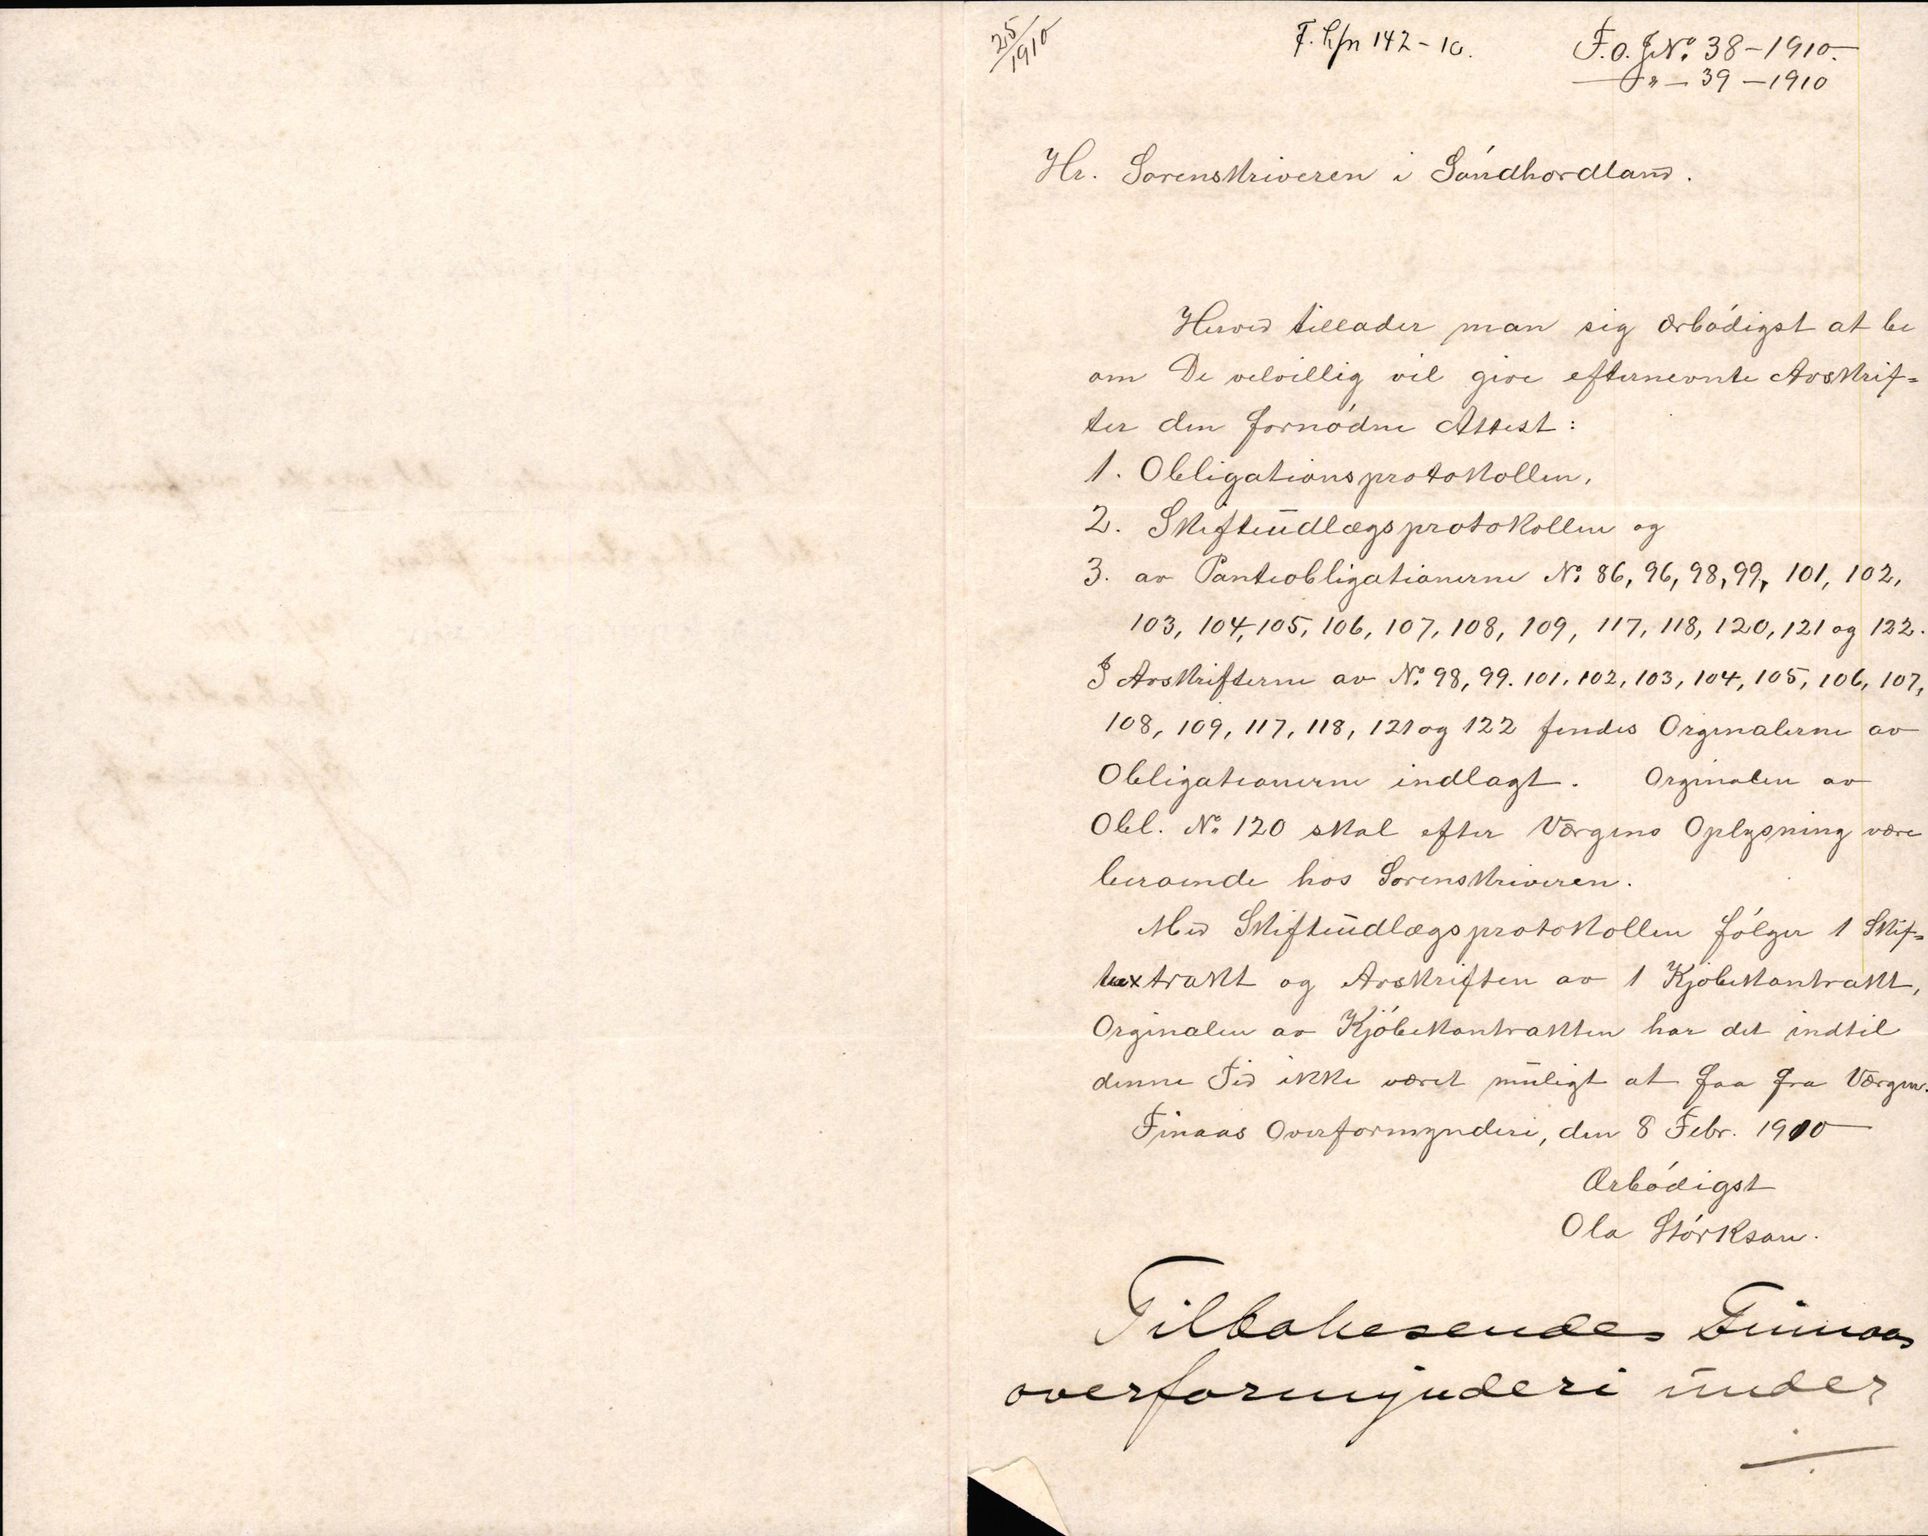 25/1910
F. hfn 142-10.
F.O.J.No. 38-1910.
— " — 39 - 1910
Hr. Sorenskriveren i Søndhordland.
Herved tillader man sig ærbødigst at be
om De velvillig vil give efternevnte Avskrif=
ter den fornødne Attest:
1. Obligationsprotokollen,
2. Skifteudlægsprotokollen og
3. av Panteobligationerne No. 86, 96, 98, 99, 101, 102,
103, 104, 105, 106, 107, 108, 109, 117, 118, 120, 121 og 122.
I Avskrifterne av No. 98, 99. 101. 102, 103, 104, 105, 106, 107,
108, 109, 117, 118, 121 og 122 findes Orginalerne av
Obligationerne indlagt. Orginalen av
Obl. No. 120 skal efter Værgens Oplysning være
beroende hos Sorenskriveren.
Med Skifteudlægsprotokollen følger 1 Skif=
textrakt og Avskriften av 1 Kjøbekontrakt,
Orginalen av Kjøbekontrakten har det indtil
denne Tid ikke været muligt at faa fra Værgen.
Finaas Overformynderi, den 8 Febr. 1910
Ærbødigst
Ola Størkson.
Tilbakesendes Finnaas
overformynderi under